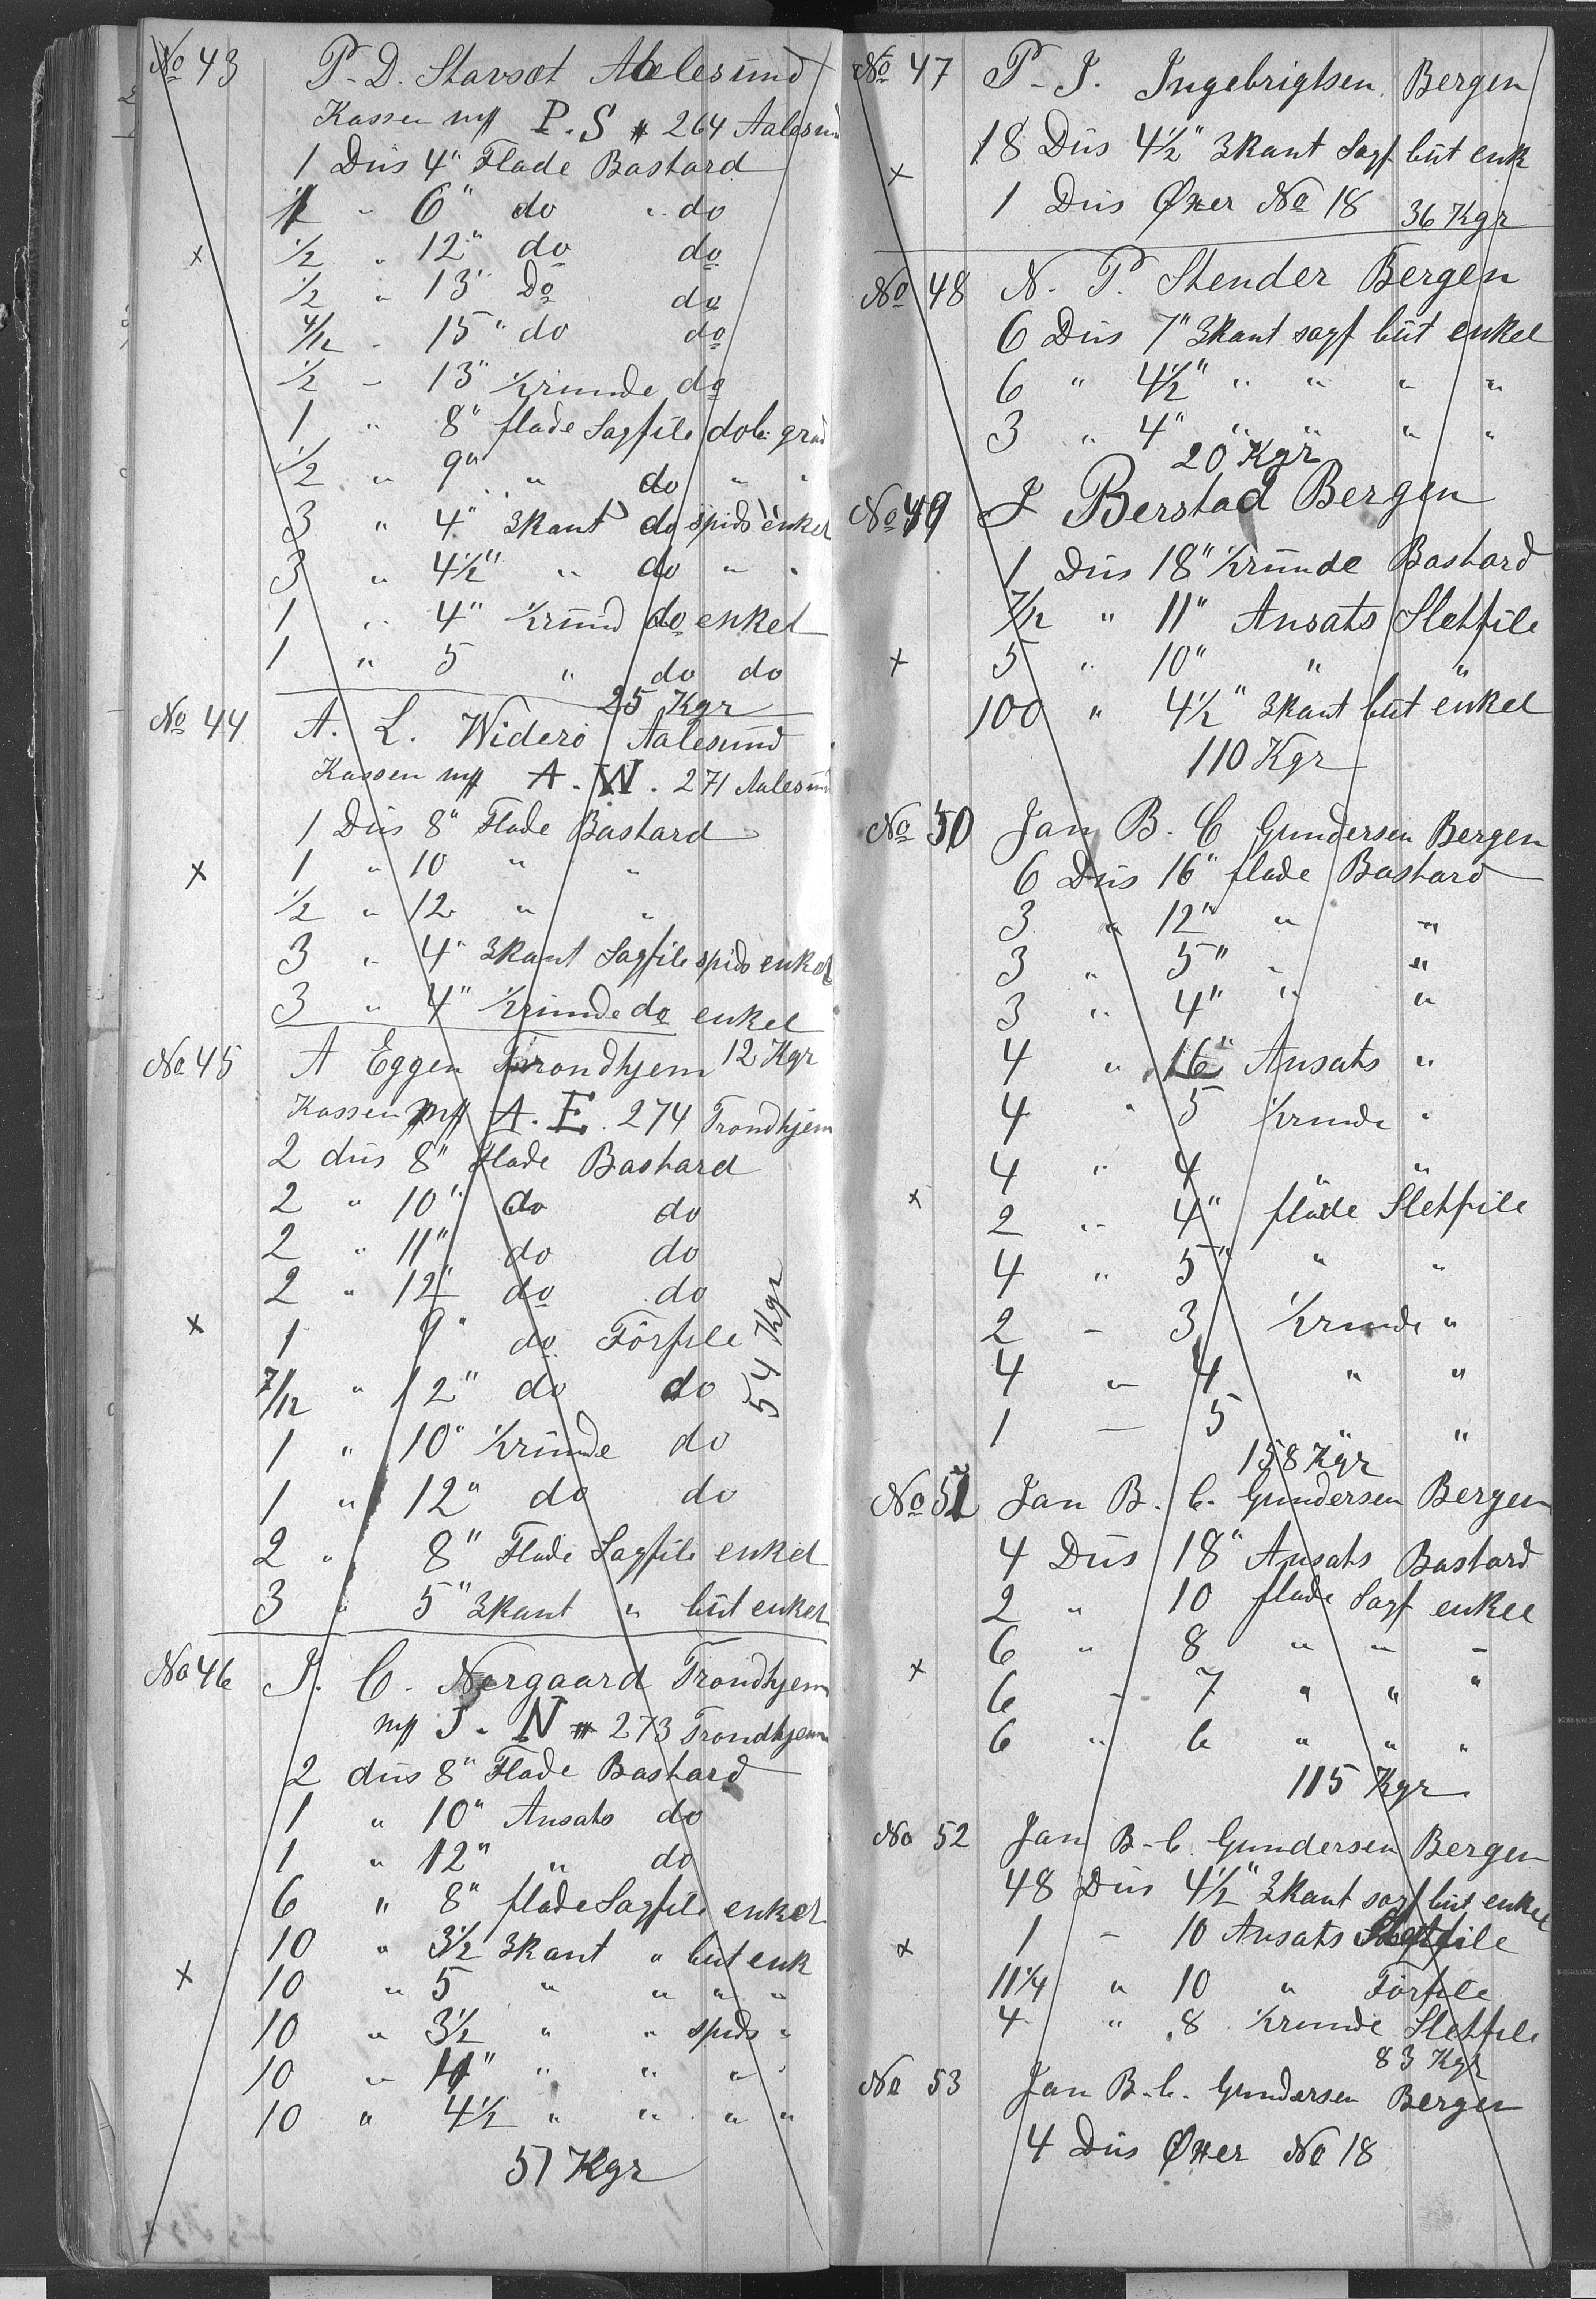 No 43 P. D. Stavset Aalesund
Kassen mrk P. S # 264 Aalesund
1 Düs 4" Flade Bastard
1 " 6" do " do
1/2 " 12" do do
1/2 " 13" Do do
4/12 " 15" do do
1/2 - 13" 1/2runde do
1 " 8" flade Sagfile dob. grad
1/2 " 9" " do " "
3 " 4" 3kant do spids enkel
3 " 4 1/2" " do " "
1 " 4" 1/2rund do enkel
1 " 5 " do do
25 Kgr
No 44 A. L. Widerö Aalesund
Kassen mrk A. W. 271 Aalesund
1 Düs 8" Flade Bastard
1 " 10 " "
1/2 " 12 " "
3 " 4" 3kant Sagfile spids enkel
3 " 4" 1/2runde do enkel
12 Kgr
No 45 A Eggen Trondhjem
Kassen mrk A. E. 274 Trondhjem
2 düs 8" Flade Bastard
2 " 10" do do
2 " 11" do do
2 " 12" do do
1 9" do Förfile
7/12 " 12" do do
54 Kgr
1 " 10" 1/2runde do
1 " 12" do do
2 " 8" Flade Sagfile enkel
3 " 5" 3kant " büt enkel
No 46 J. C. Nergaard Trondhjem
mrk J. N # 273 Trondhjem
2 düs 8" Flade Bastard
1 " 10" Ansats do
1 " 12" " do
6 " 8" flade Sagfile enkel
10 " 3 1/2 3kant " but enk
10 " 5 " " " "
10 " 3 1/2 " " spids "
10 " 4" " " " "
10 " 4 1/2 " " " "
51 Kgr
No 47 P. J. Ingebrigtsen Bergen
18 Düs 4 1/2" 3kant Sagf büt enk
1 Düs Øxer No 18 36 Kgr
No 48 N. P. Stender Bergen
6 Düs 7" 3kant sagf büt enkel
6 " 4 1/2" " " " "
3 " 4" " " " "
20 Kgr
No 49 J Berstad Bergen
1 Düs 18" 1/2runde Bastard
7/12 " 11" Ansats Sletfile
5 " 10" " "
100 " 4 1/2" 3kant büt enkel
110 Kgr
No 50 Jan B. C Gundersen Bergen
6 Düs 16" flade Bastard
3 " 12" " "
3 " 5" " "
3 " 4" " "
4 " 16" Ansats "
4 " 5 1/2runde "
4 " 4 " "
2 " 4" flade Sletfile
4 " 5" " "
2 - 3 1/2runde "
4 " 4 " "
1 - 5 " "
158 Kgr
No 51 Jan B. C. Gundersen Bergen
4 Düs 18" Ansats Bastard
2 " 10 flade Sagf enkel
6 " 8 " " "
6 - 7 " " "
6 " 6 " " "
115 Kgr
No 52 Jan B. C. Gundersen Bergen
48 Düs 4 1/2" 3kant sagf büt enkel
1 - 10 Ansats Sletfile
11 1/4 " 10 " Förfile
4 " 8 1/2runde Sletfile
83 Kgr
No 53 Jan B. C. Gundersen Bergen
4 Düs Øxer No 18